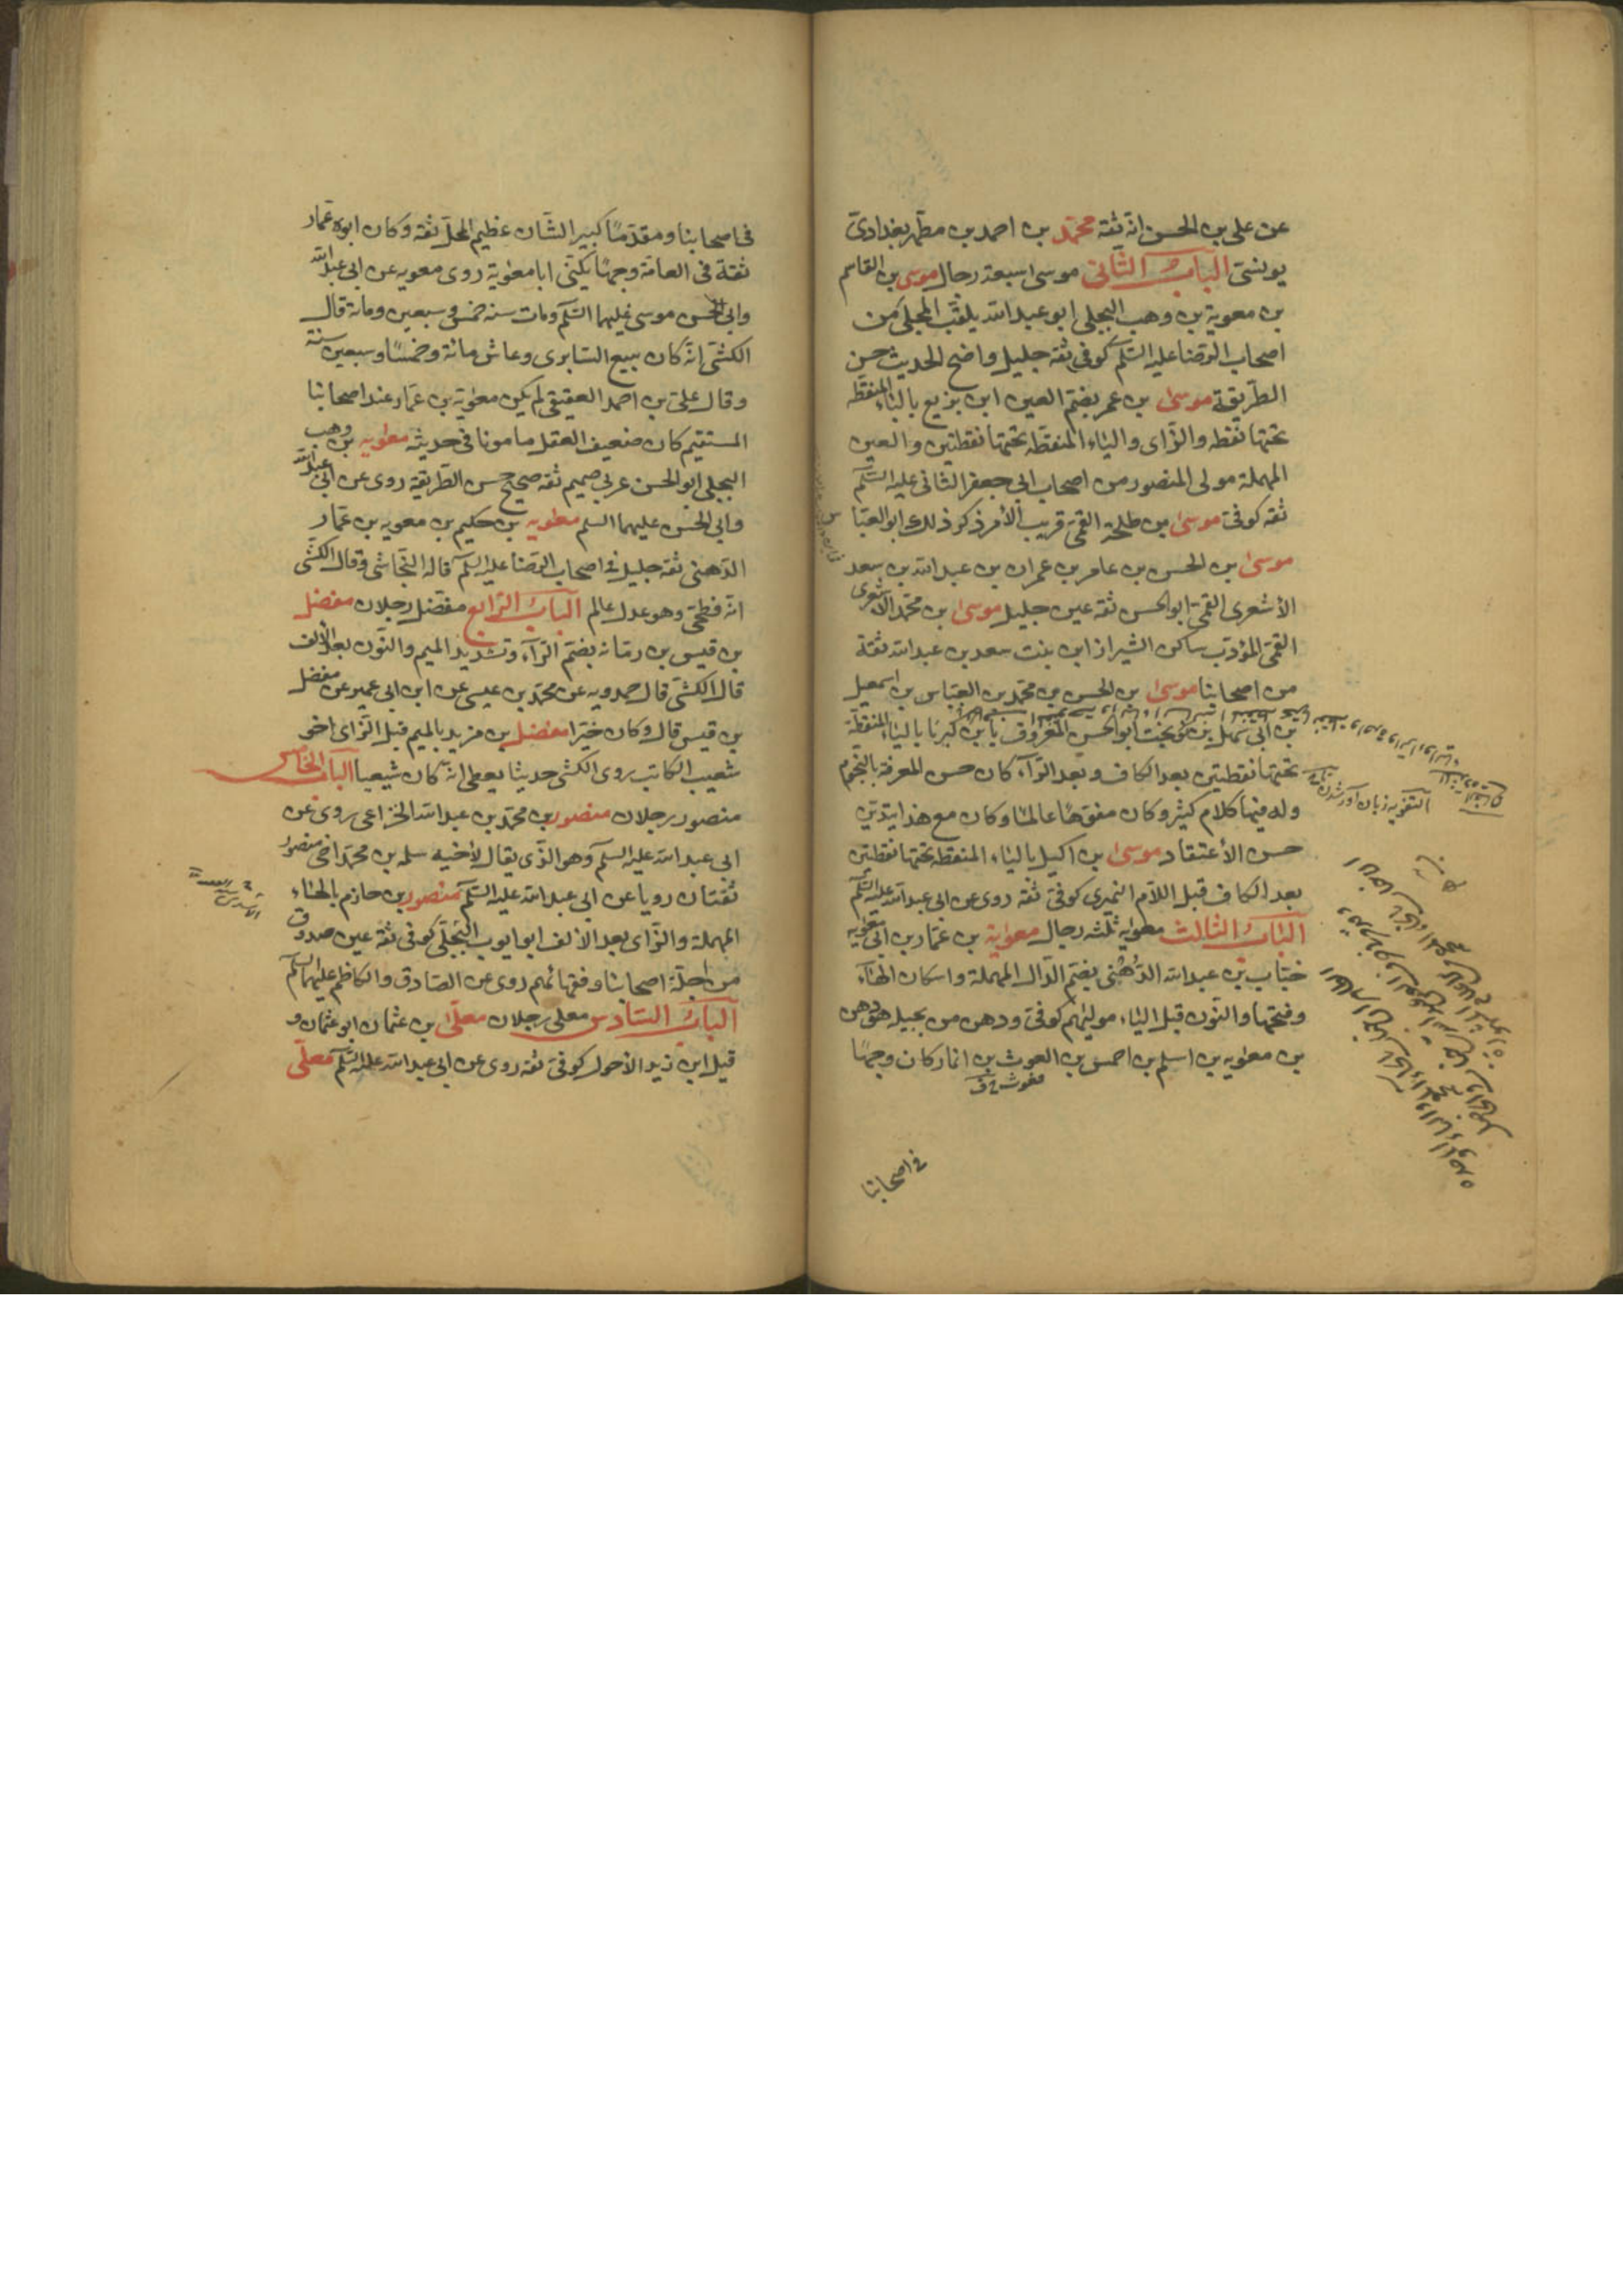 عن علي بن الحسن انه ثقة محمّد بن احمد بن مطهر بغدادىّ
يونسىّ الباب الثانى موسى سبعة رجال موسى بن القاسم
بن معوية بن وهب البجلى ابو عبد الله يلقب المجلى من
اصحاب الرضا عليه السّلم كوفى ثقة جليل واضح الحديث حسن
الطريقة موسى بن عمر بضمّ العين ابن بزيع بالباء المنقطة
تحتها نقطة والزّاى والياء المنقّطة تحتها نقطتين والعين
المهملة مولى المنصور من اصحاب ابى جعفر الثانى عليه السّلم
ثقة كوفىّ موسى بن طلحة القمّى قريب الأمر ذكر ذلك ابو العبّاس
موسى بن الحسن بن عامر بن عمران بن عبد الله بن سعد
الأشعرى القمّى ابو الحسن ثقة عين جليل موسى بن محمّد الأشعرى
القمّى المؤدّب ساكن الشيراز ابن بنت سعد بن عبد الله ثقة
من اصحابنا موسى بن الحسن بن محمّد بن العبّاس بن اسمعيل
بن ابى سهل بن نوبخت ابو الحسن المعروف بابن كبريا بالياء المنقطة
تحتها نقطتين بعد الكاف وبعد الرّاء كان حسن المعرفة بالنجوم
وله فيها كلام كثير وكان مفوّهًا عالمًا وكان مع هذا يتديّن
حسن الأعتقاد موسى بن اكيل بالياء المنقطة تحتها نقطتين
بعد الكاف قبل اللّام النميرى كوفىّ ثقة روى عن ابى عبد الله عليه السّلم
الباب الثالث معوية ثلثة رجال معوية بن عمّار بن ابى معوية
خبّاب بن عبد الله الدُّهْنى بضمّ الدّال المهملة واسكان الهاء
وفتحها والنّون قبل الياء مولاهم كوفىّ ودهن من بجيلة وهو دهن
بن معوية بن اسلم بن احمس بن الغوث بن انمار كان وجهًا
فى اصحابنا
فى اصحابنا ومقدّمًا كبير الشّان عظيم المحلّ ثقة وكان ابوه عمّار
ثقة فى العامّة وجهًا يكنّى ابا معوية روى معوية عن ابى عبد الله
وابى الحسن موسى عليهما السّلم ومات سنة خمس وسبعين ومائة قال
الكشّى انّه كان يبيع السّابرى وعاش مائة وخمسًا وسبعين سنة
وقال علىّ بن احمد العقيقى لم يكن معوية بن عمّار عند اصحابنا
المستقيم كان ضعيف العقل مامونا فى حديثه معوية بن وهب
البجلى ابو الحسن عربى صميم ثقة صحيح حسن الطّريقة روى عن ابى عبد الله
وابى الحسن عليهما السلم معوية بن حكيم بن معوية بن عمّار
الدّهنى ثقة جليل فى اصحاب الرّضا عليه السّلم قاله النّجاشى وقال الكشّى
انّه فطحىّ وهو عدل عالم الباب الرّابع مفضّل رجلان مفضل
بن قيس بن رمّانة بضمّ الرّاء وتشديد الميم والنّون بعد الألف
قال الكشّى قال حمدويه عن محمّد بن عيسى عن ابن ابى عمير عن مفضل
بن قيس قال وكان خيّرا مفضل بن مزيد بالميم قبل الزّاى اخو
شعيب الكاتب روى الكشّى حديثا يعطى انّه كان شيعيا الباب الخامس
منصور رجلان منصور بن محمّد بن عبد الله الخزاعى روى عن
ابى عبد الله عليه السلم وهو الّذى يقال لأخيه سلمة بن محمّد اخى منصور
ثقتان رويا عن ابى عبد الله عليه السّلم منصور بن حازم بالحاء
المهملة والزّاى بعد الألف ابو ايوب البجلّى كوفى ثقة عين صدوق
من اجلّة اصحابنا وفقهائهم روى عن الصّادق والكاظم عليهما السّلم
الباب السّادس معلى رجلان معلّى بن عثمان ابو عثمان و
قيل ابن زيد الأحول كوفىّ ثقة روى عن ابى عبد الله عليه السّلم معلّى